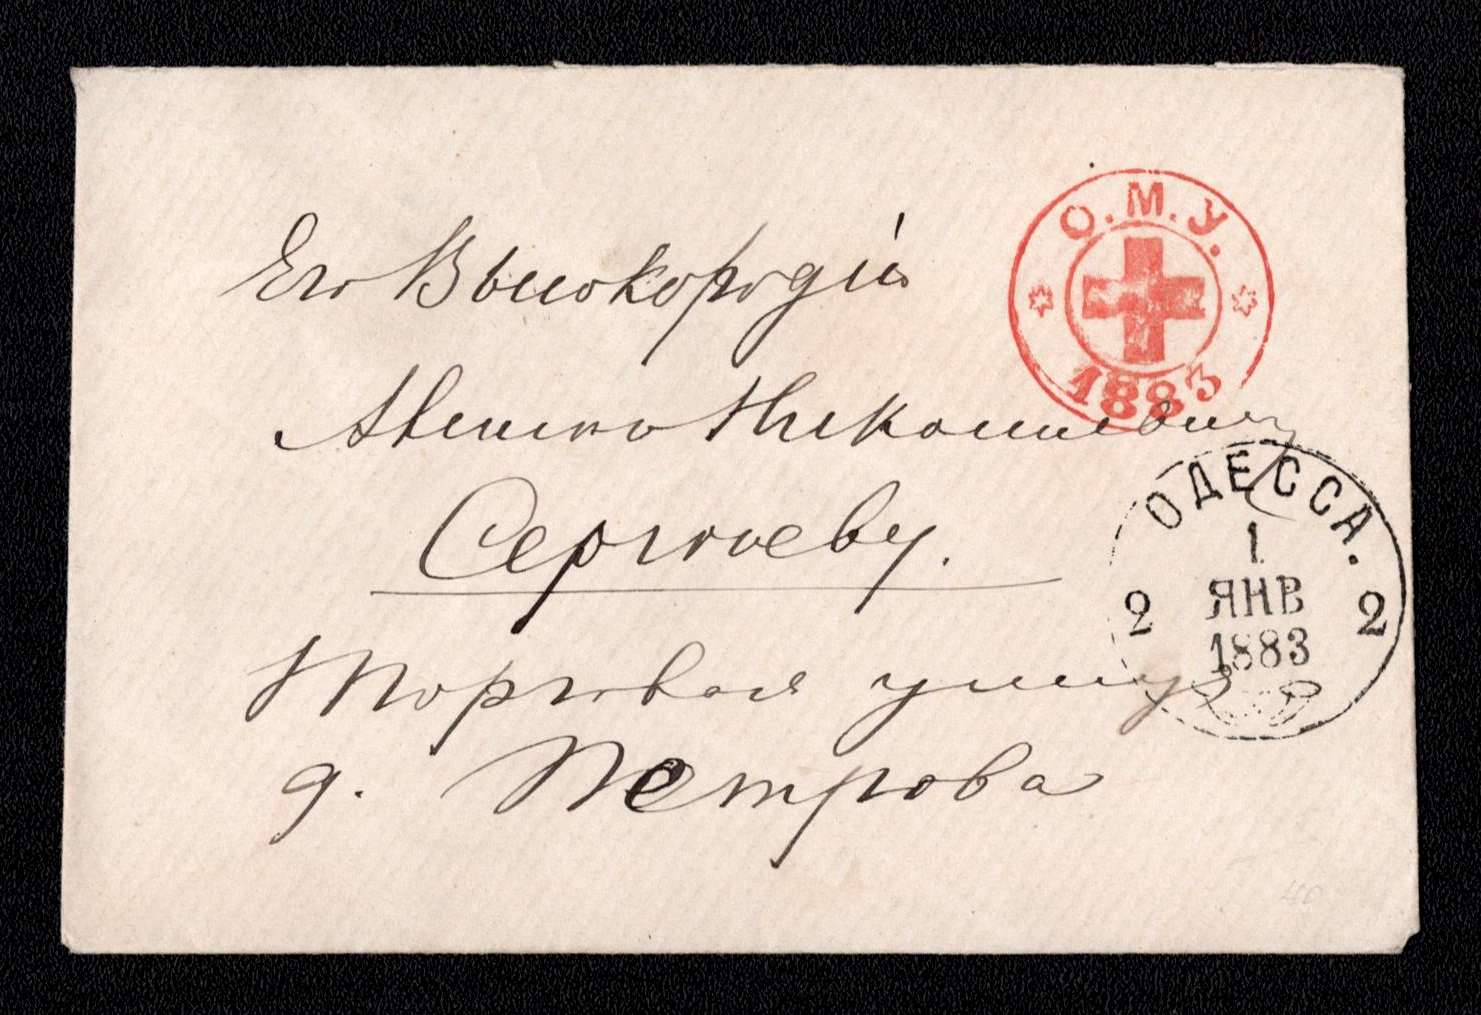 О.М.У.
1883
Его Высокородію
Николаевичу
Сергееву.
Торговая улица
д. Петрова
ОДЕССА.
1
ЯНВ
1883
2 2